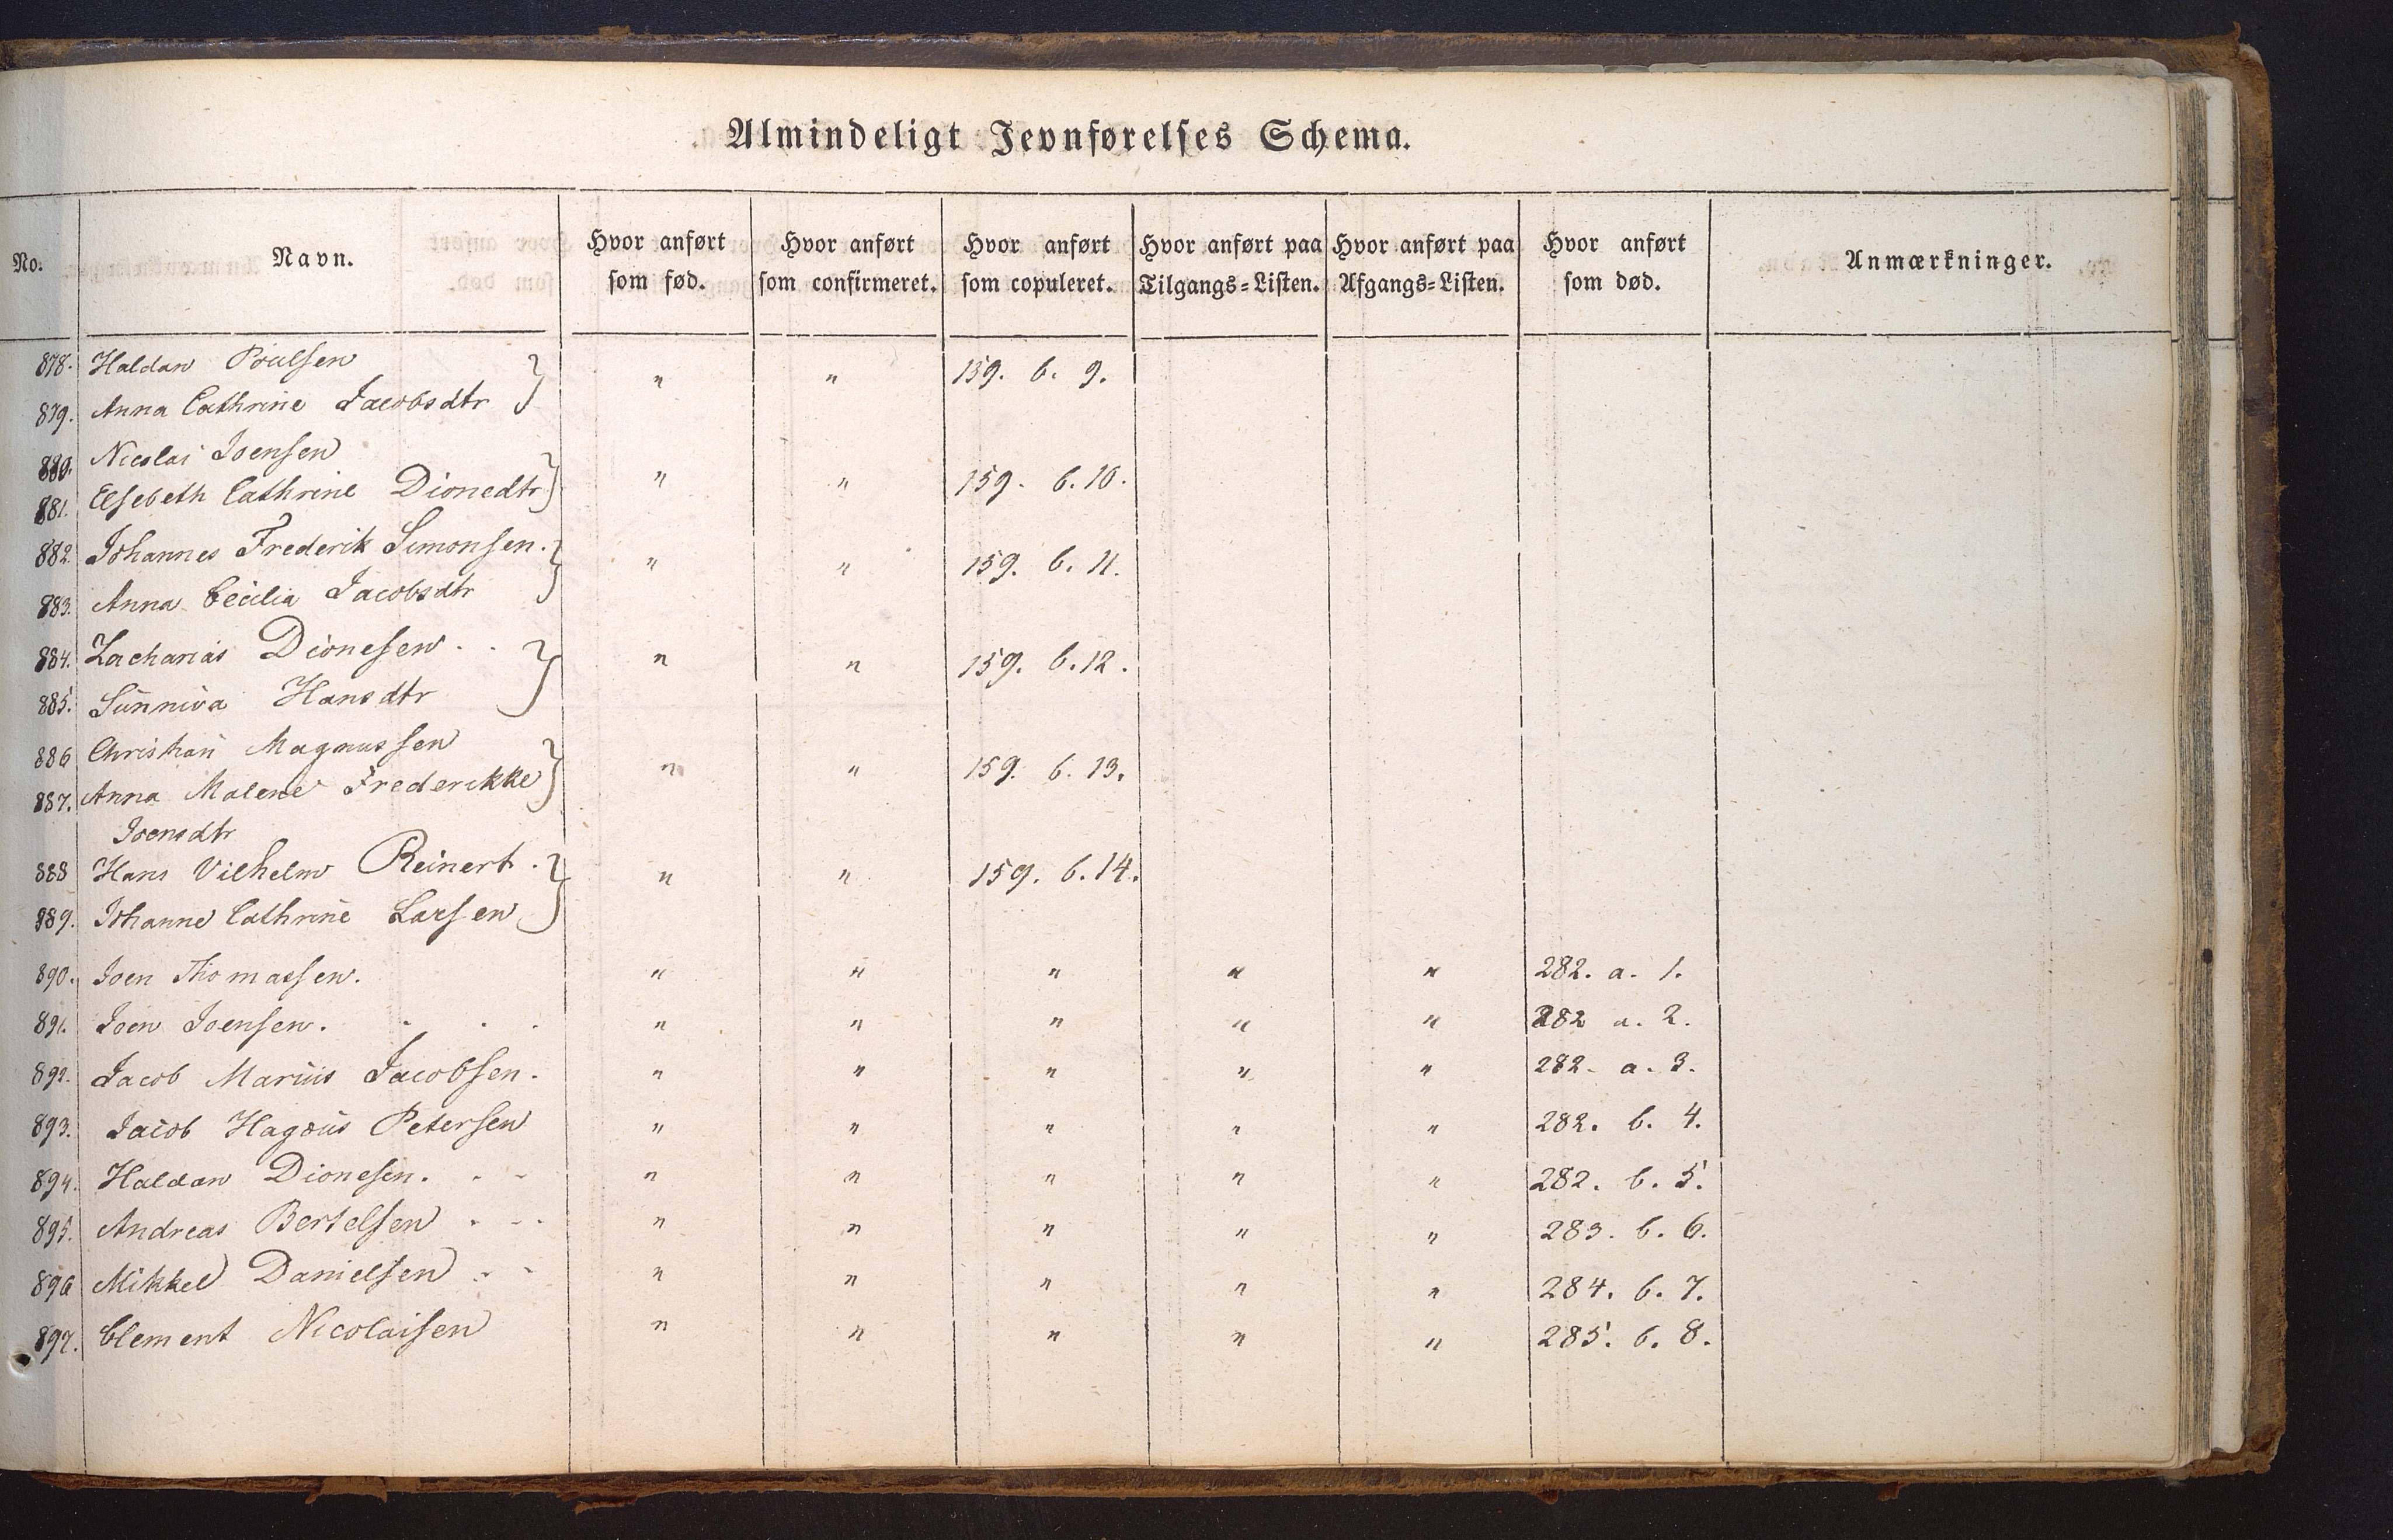 Almindeligt Jevnførelses Schema.
No. Navn. Hvor anført som fød. Hvor anført som confirmeret. Hvor anført som copuleret. Hvor anført paa Tilgangs=Listen. Hvor anført paa Afgangs=Listen. Hvor anført som død. Anmærkninger.
878. Haldan Poulsen } " " 159. b. 9.
879. Anna Cathrine Jacobsdtr
880. Nicolai Joensen } " " 159. b. 10.
881. Elsebeth Cathrine Dionedtr
882. Johannes Frederik Simonsen. } " " 159. b. 11.
883. Anna Cecilia Jacobsdtr
884. Zacharias Dionesen . . } " " 159. b. 12.
885. Sunniva Hansdtr
886 Christian Magnussen } " " 159. b. 13.
887. Anna Malene Frederikke
Joensdtr
888 Hans Vilhelm Reinert . } " " 159. b. 14.
889. Johanne Cathrine Larsen
890. Joen Thomassen. " " " " " 282. a. 1.
891. Joen Joensen. . . . " " " " " 282 a. 2.
892. Jacob Marius Jacobsen. " " " " " 282. a. 3.
893. Jacob Petersen " " " " " 282. b. 4.
894. Haldan Dionesen. . - " " " " " 282. b. 5.
895. Andreas Bertelsen . - . " " " " " 283. b. 6.
896 Mikkel Danielsen - - " " " " " 284. b. 7.
897. Clement Nicolaisen " " " " " 285. b. 8.